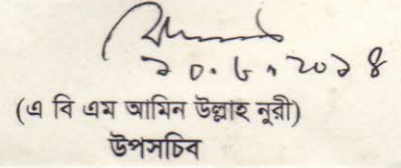 ১০.৬.২০১৪
(এ বি এম আমিন উল্লাহ নূরী)
উপসচিব